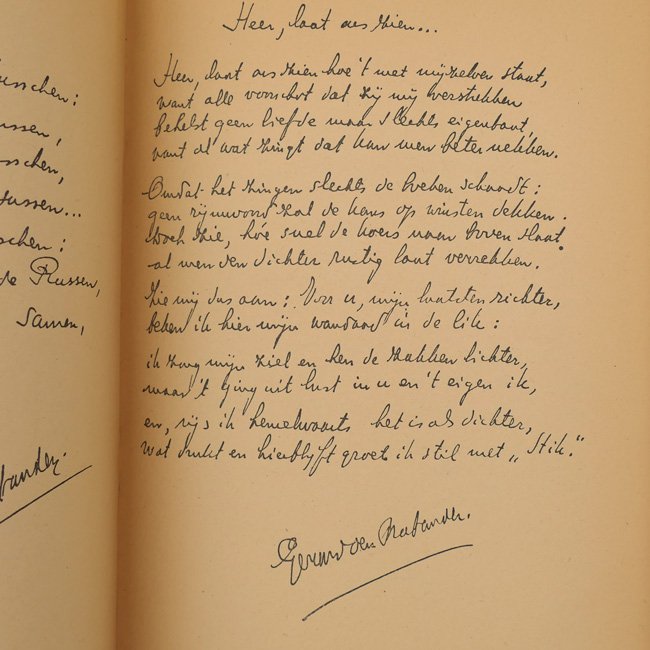 usschen:
ussen,
sschen,
tussen...
schen:
de Russen,
samen,
Heer, laat ons zien...
Heer, laat ons zien hoe 't met mijzelven staat,
want alle voorschot dat zij mij verstrekken
behelst geen liefde maar slechts eigenbaat,
want al wat zingt dat kan men beter nekken.
Omdat het zingen slechts de boeken schaadt:
geen rijmwoord zal de kans op winsten dekken.
Doch zie, hoe snel de koers naar boven slaat
al men den dichter rustig laat verrekken.
Zie mij dus aan: Voor u, mijn laatsten richter,
beken ik hier mijn wandaad in de lik:
ik zong mijn ziel en hen de zakken lichter,
maar 't ging uit lust in u en 't eigen ik,
en, rijs ik hemelwaarts het is als dichter,
wat drukt en hierblijft groet ik stil met „Stik."
Gerard den Brabander.